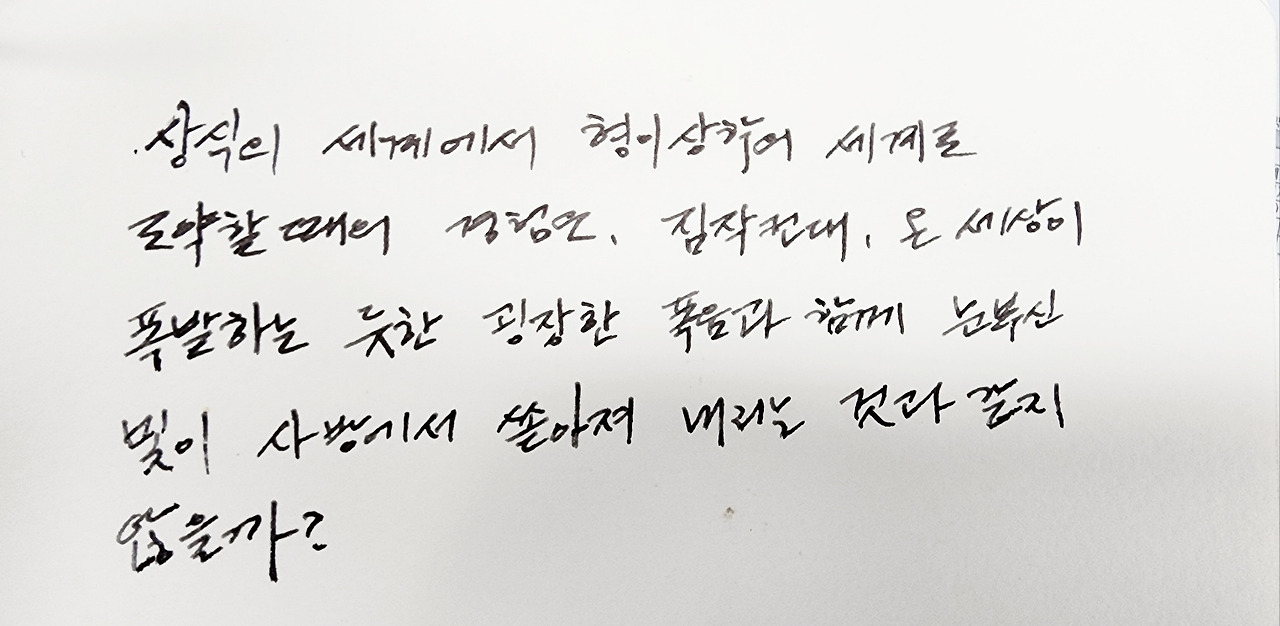 상식의 세계에서 형이상학의 세계로
도약할 때의 경험은, 짐작컨대, 온 세상이
폭발하는 듯한 굉장한 폭음과 함께 눈부신
빛이 사방에서 쏟아져 내리는 것과 같지
않을까?